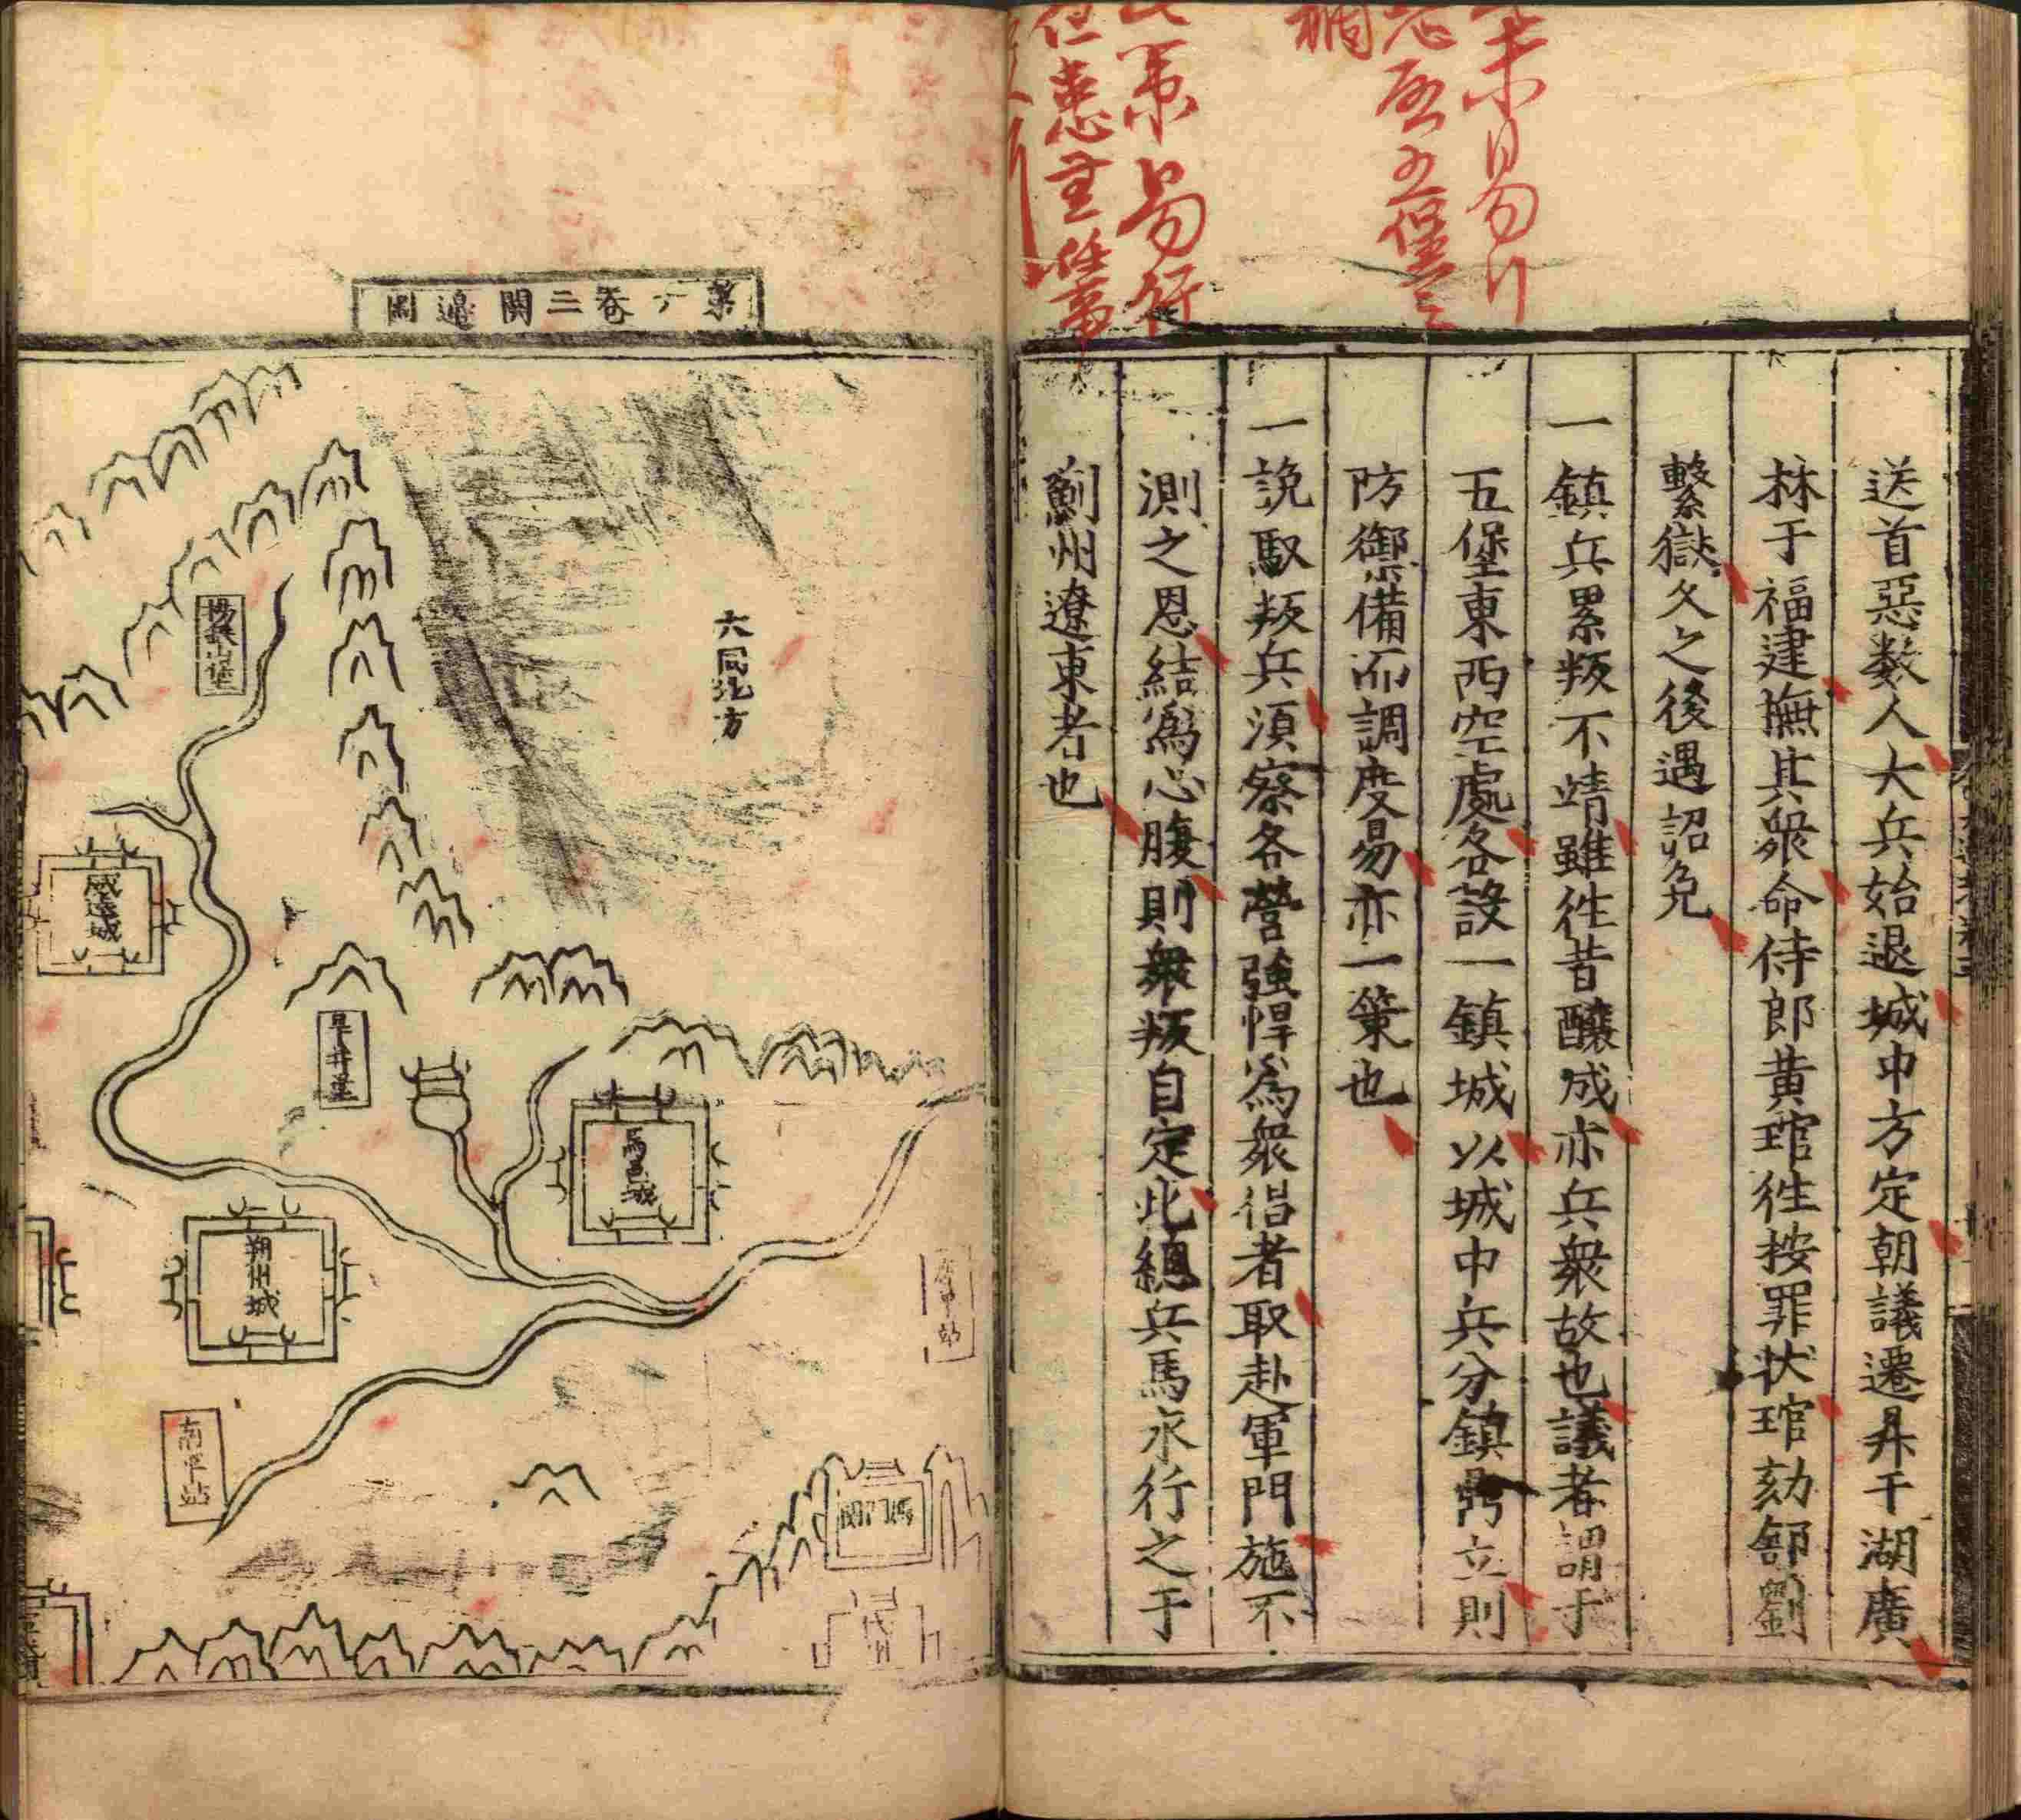 送首惡數人大兵始退城中方定朝議遷昇于湖廣
林于福建撫其衆命侍郎黃琯徃按罪状琯劾郤劉
繫獄久之後遇詔免
一鎮兵累叛不靖雖徃昔釀成亦兵衆故也議者謂于
五堡東西空處各設一鎮城以城中兵分鎮鼎立則
防禦備而調度易亦一策也
一說馭叛兵湏察各營強悍爲衆倡者取赴軍門施不
測之恩結爲心腹則衆叛自定此緫兵馬永行之于
薊州遼東者也
未易行
五堡
策易行
但患無任事
三關邊圖
楊鉄山堡
威遠城
旱井堡
馬邑城
朔州城
南平站
鴈門關